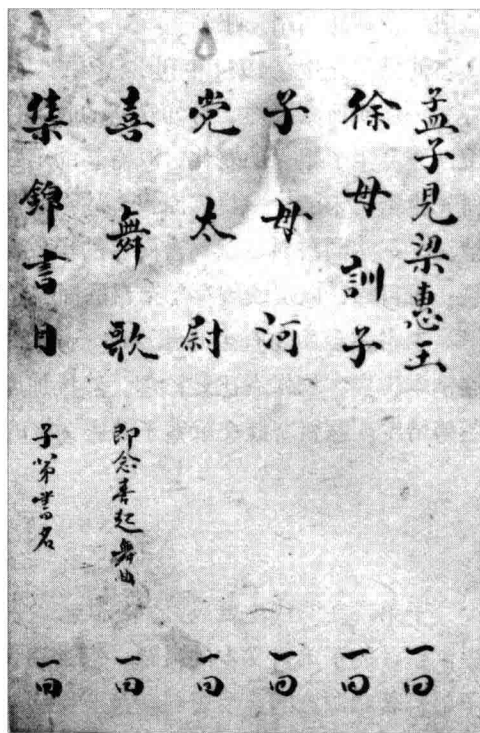 孟子見梁惠王 一回
徐母訓子 一回
子母河 一回
党太尉 一回
喜舞歌 即念喜起舞曲 一回
集錦書目 子弟書名 一回